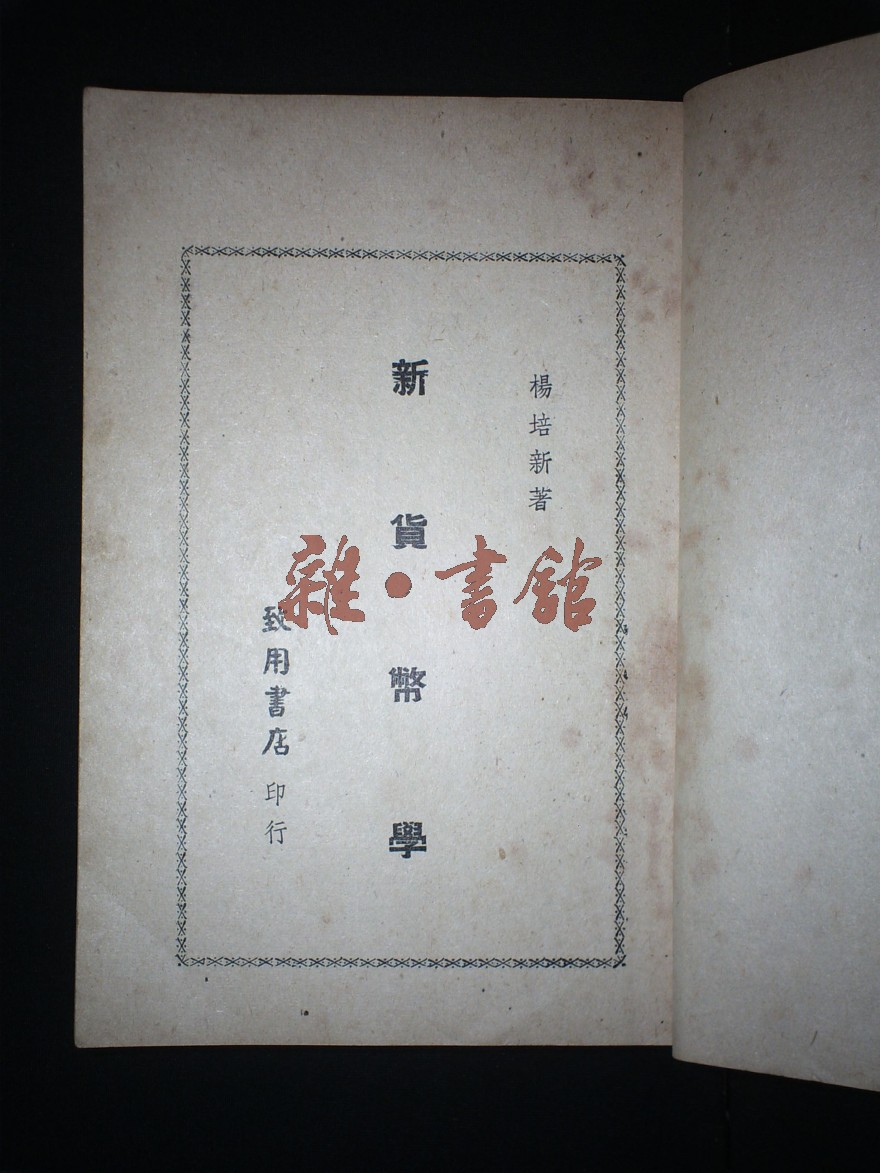 楊培新著
新貨幣學
致用書店印行
雜·書館